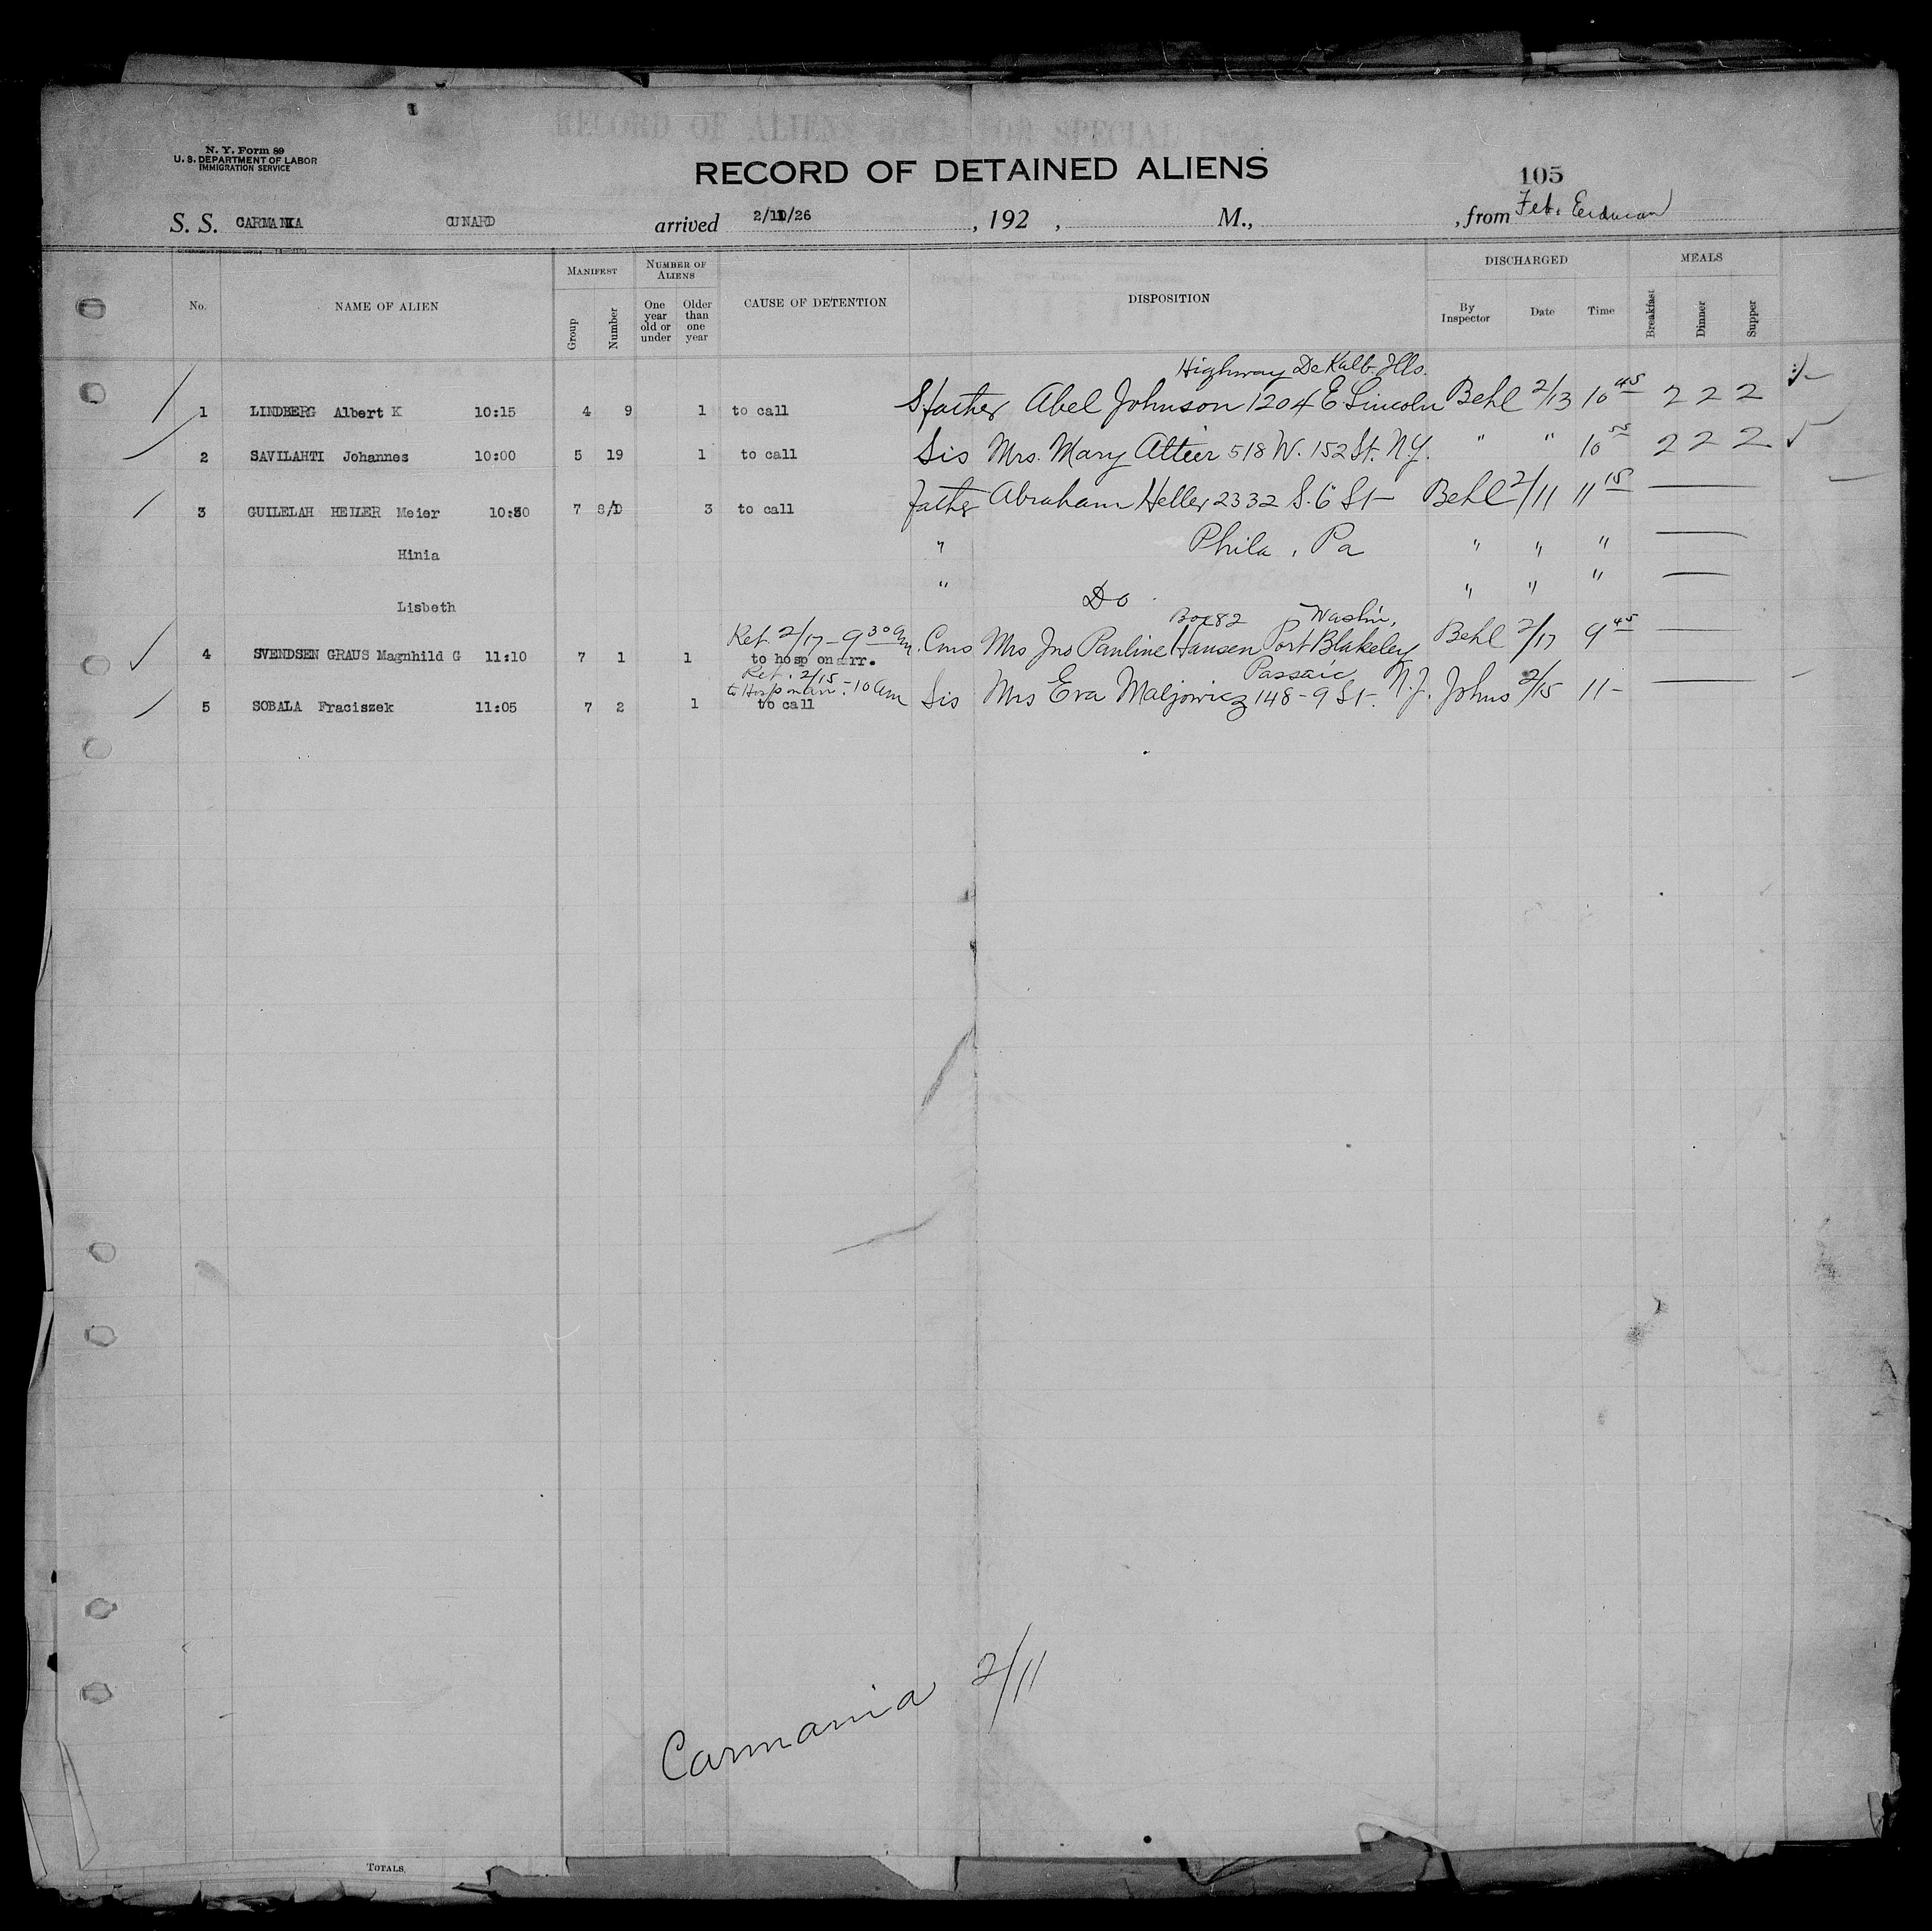 RECORD OF ALIENS HELD FOR SPECIAL
N. Y. Form 89
U. S. DEPARTMENT OF LABOR
IMMIGRATION SERVICE
RECORD OF DETAINED ALIENS
105
S. S. CARMANIA CUNARD arrived 2/11/26, 192 , M., , from Feb.
No. NAME OF ALIEN MANIFEST Group Number NUMBER OF ALIENS One year old or under Older than one year CAUSE OF DETENTION DISPOSITION DISCHARGED By Inspector Date Time MEALS Breakfast Dinner Supper
Highway DeKalb Ills.
1 LINDBERG Albert K 10:15 4 9 1 to call S.father Abel Johnson 1204 E Lincoln Behl 2/13 10 45 2 2 2
2 SAVILAHTI Johannes 10:00 5 19 1 to call Sis Mrs. Mary Atteer 518 W. 152 St. N.Y. " " 10 55 2 2 2
3 GUILELAH HELLER Meier 10:30 7 8/D 3 to call father Abraham Heller 2332 S. 6 St — Behl 2/11 11 15
Hinia " Phila, Pa " " "
Lisbeth " Do " " "
Ret. 2/17 - 9 30 am. Box 82 Washn,
4 SVENDSEN GRAUS Magnhild G 11:10 7 1 1 to hosp on arr. Cms Mrs Jns Pauline Hansen Port Blakeley Behl 2/17 9 45
Ret. 2/15 Passaic
to Hosp on arr. - 10 am
5 SOBALA Fraciszek 11:05 7 2 1 to call Sis Mrs Eva Maljowicz 148 - 9 St. N.J. Johns 2/15 11 -
Carmania 2/11
TOTALS,